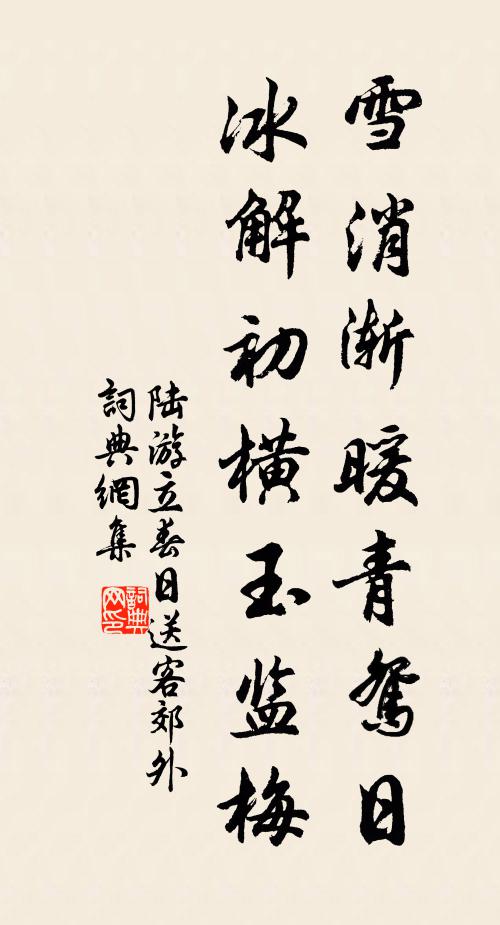 雪消渐暖青鸳日
冰解初横玉监梅
陆游立春日送客郊外
詞典網集
詞典网印